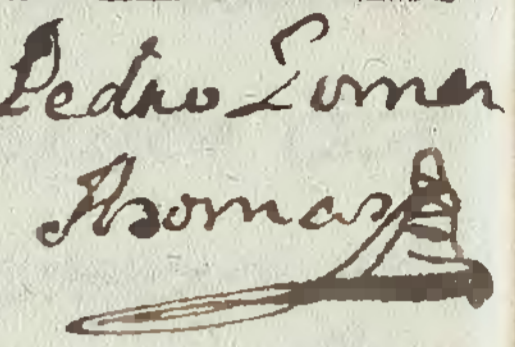 Pedro Lumer
Thomas